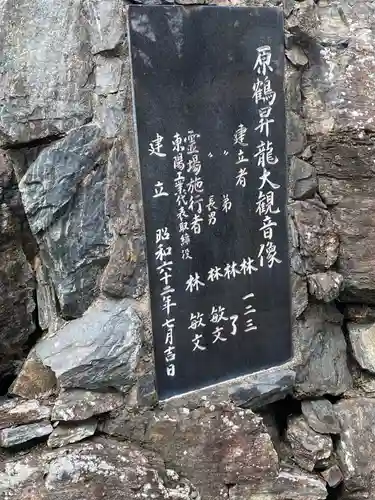 原鶴昇龍大観音像
建立者 林 一二三
〃 弟 林 了
長男 林 敏文
霊場施行者
東陽工業代表取締役 林 敏文
建立 昭和六十二年七月吉日